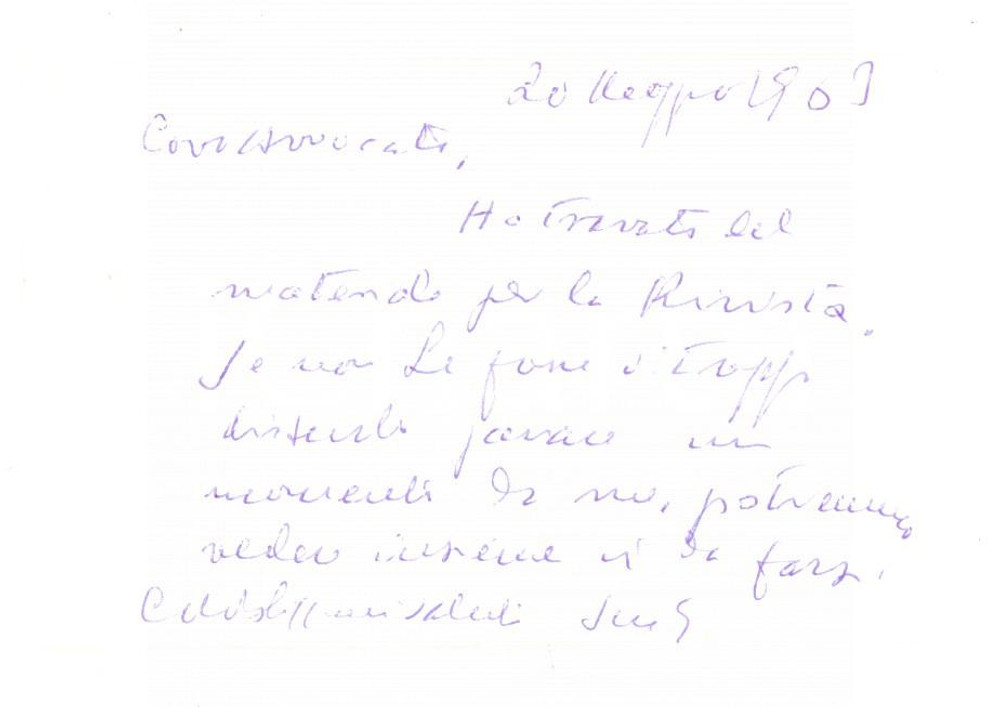 20 Maggio 1963
Caro Avvocato,
Ho trovato del
materiale per la Rivista.
Se non Le fosse di troppo
disturbo passare un
momento da me, potremmo
vedere insieme il da farsi.
Cordialissimi saluti